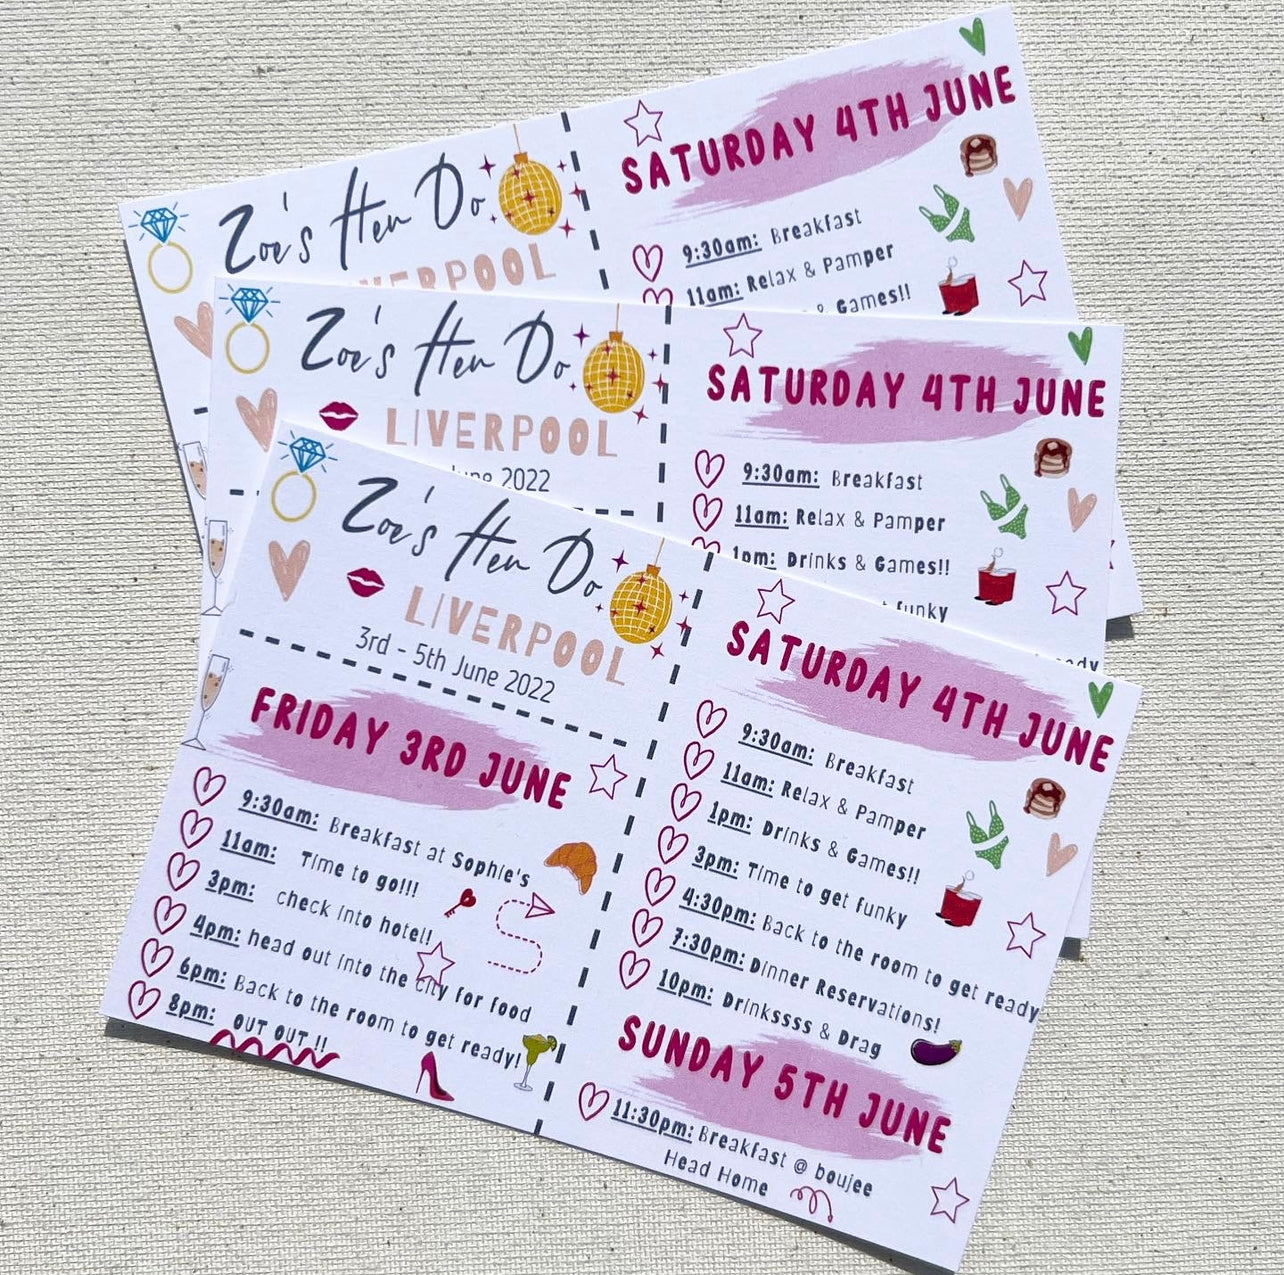 Zoe's Hen Do
VERPOOL
SATURDAY 4TH JUNE
9:30am: Breakfast
11am: Relax & Pamper
& Games!!
Zoe's Hen Do
LIVERPOOL
June 2022
SATURDAY 4TH JUNE
9:30am: Breakfast
11am: Relax & Pamper
1pm: Drinks & Games!!
funky
Zoe's Hen Do
LIVERPOOL
3rd - 5th June 2022
FRIDAY 3RD JUNE
9:30am: Breakfast at Sophie's
11am: Time to go!!!
3pm: check into hotel!
4pm: head out into the city for food
6pm: Back to the room to get ready!
8pm: OUT OUT !!
SATURDAY 4TH JUNE
9:30am: Breakfast
11am: Relax & Pamper
1pm: Drinks & Games!!
3pm: Time to get funky
4:30pm: Back to the room to get ready
7:30pm: Dinner Reservations!
10pm: Drinkssss & Drag
SUNDAY 5TH JUNE
11:30pm: Breakfast @ boujee
Head Home